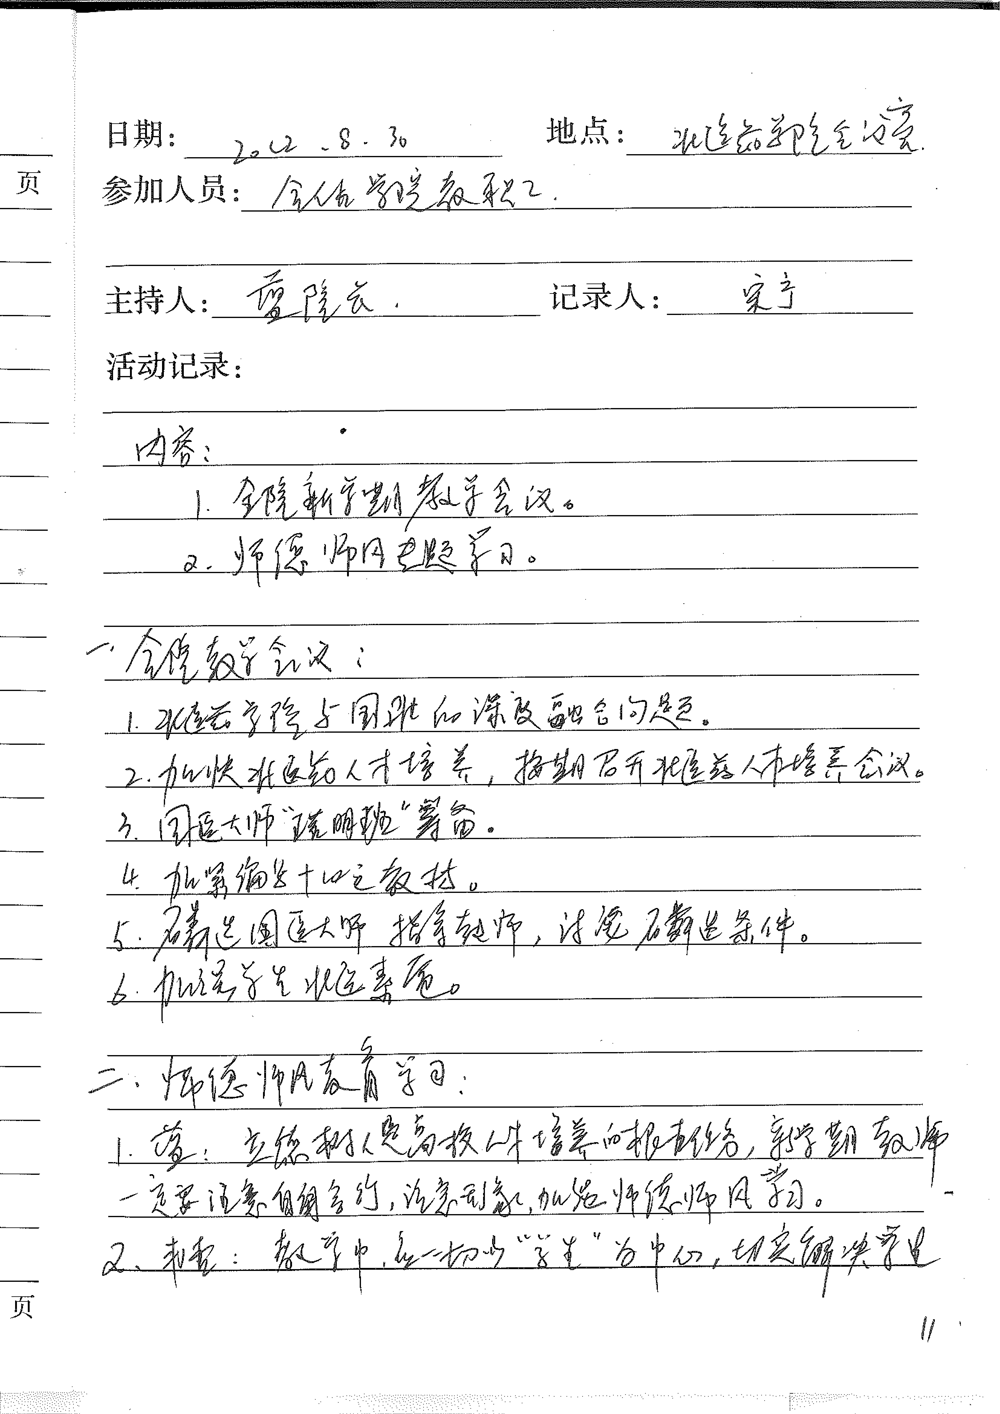 页
日期: 2022.8.30 地点: 北医药学院会议室.
参加人员: 全体学院教职工.
主持人: 董院长. 记录人: 宋宁
活动记录:
内容:
1. 全院新学期教学会议。
2. 师德师风专题学习。
一. 全院教学会议:
1. 北医药学院与国班的深度融合问题。
2. 加快北医药人才培养，按期召开北医药人才培养会议。
3. 国医大师"瑶明班"筹备。
4. 加紧编写十四五教材。
5. 遴选国医大师 指导老师，讨论遴选条件。
6. 加强学生北医素质。
二. 师德师风教育学习:
1. 董: 立德树人是高校人才培养的根本任务，新学期教师
一定要注意自身言行，注意形象，加强师德师风学习。
2. : 教学中，在一切以"学生"为中心，切实解决学生
页
11